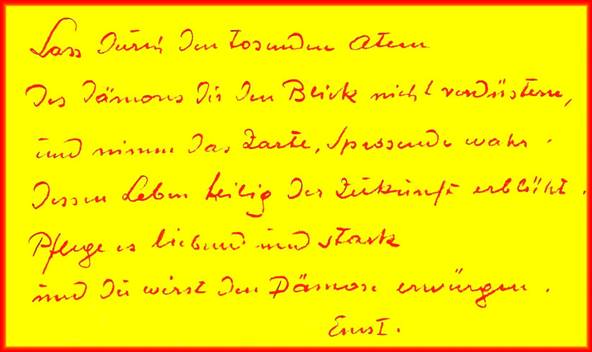 Lass durch den tosenden Atem
des Dämons dir den Blick nicht verdüstern,
und nimm das Zarte, Sprossende wahr.
Dessen Leben heilig der Zukunft erblüht.
Pflege es liebend und stark
und du wirst den Dämon erwürgen.
Ernst.